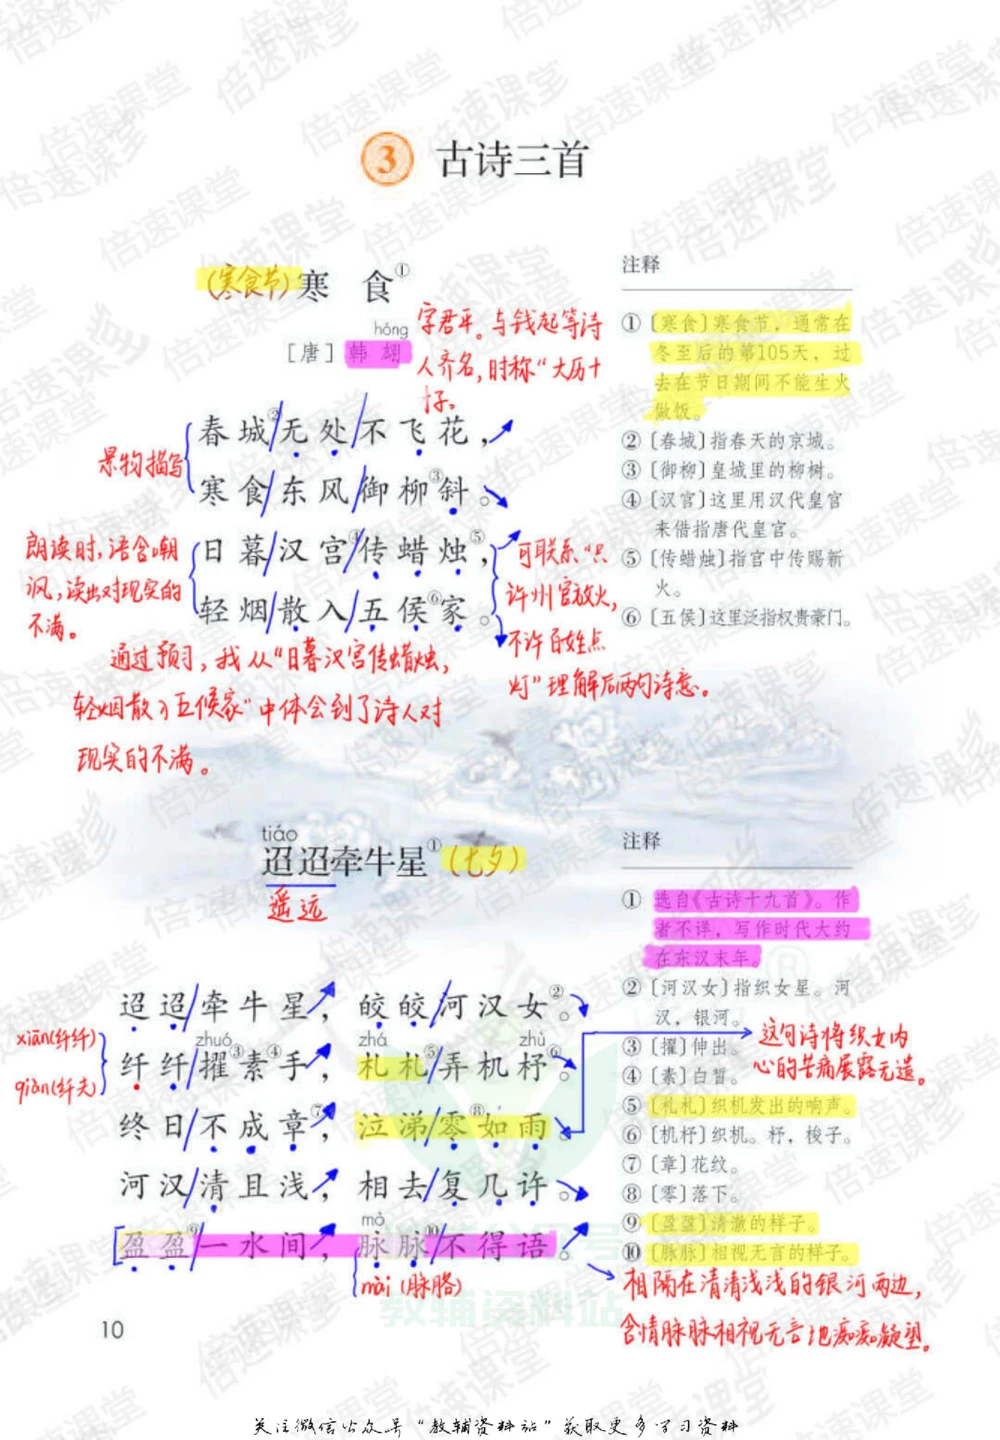 3 古诗三首
(寒食节)寒 食①
hóng
[唐]韩 翃
字君平。与钱起等诗
人齐名,时称“大历十
才子。
景物描写
春城②/无处/不飞花,
寒食/东风/御柳③斜。
朗读时,语含嘲
讽,读出对现实的
不满。
日暮/汉宫④/传蜡烛⑤,
轻烟/散入/五侯⑥家。
可联系“只
许州官放火,
不许百姓点
灯”理解后两句诗意。
通过预习,我从“日暮汉宫传蜡烛,
轻烟散入五侯家”中体会到了诗人对
现实的不满。
注释
①〔寒食〕寒食节,通常在
冬至后的第105天,过
去在节日期间不能生火
做饭。
②〔春城〕指春天的京城。
③〔御柳〕皇城里的柳树。
④〔汉宫〕这里用汉代皇宫
来借指唐代皇宫。
⑤〔传蜡烛〕指宫中传赐新
火。
⑥〔五侯〕这里泛指权贵豪门。
tiáo
迢迢牵牛星①(七夕)
遥远
迢迢/牵牛星, 皎皎/河汉女②。
xiān(纤纤)
qiàn(纤夫)
zhuó zhá zhù
纤纤/擢③素④手, 札札⑤/弄机杼⑥。
终日/不成章⑦, 泣涕/零⑧如雨。
河汉/清且浅, 相去/复几许。
mò
盈盈⑨/一水间, 脉脉⑩/不得语。
mài(脉胳)
这句诗将织女内
心的苦痛展露无遗。
相隔在清清浅浅的银河两边,
含情脉脉相视无言地痴痴凝望。
注释
①选自《古诗十九首》。作
者不详,写作时代大约
在东汉末年。
②〔河汉女〕指织女星。河
汉,银河。
③〔擢〕伸出。
④〔素〕白皙。
⑤〔札札〕织机发出的响声。
⑥〔机杼〕织机。杼,梭子。
⑦〔章〕花纹。
⑧〔零〕落下。
⑨〔盈盈〕清澈的样子。
⑩〔脉脉〕相视无言的样子。
10
教辅资料站
关注微信公众号“教辅资料站”获取更多学习资料
倍速课堂